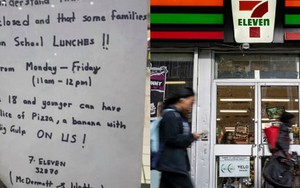 understand
closed and that some families
on School LUNCHES !!
from Monday - Friday
(11am - 12pm)
18 and younger can have
slice of Pizza, a banana with
Big Gulp ON US !
7-ELEVEN
32870
(McDermott &
7
ELEVEN